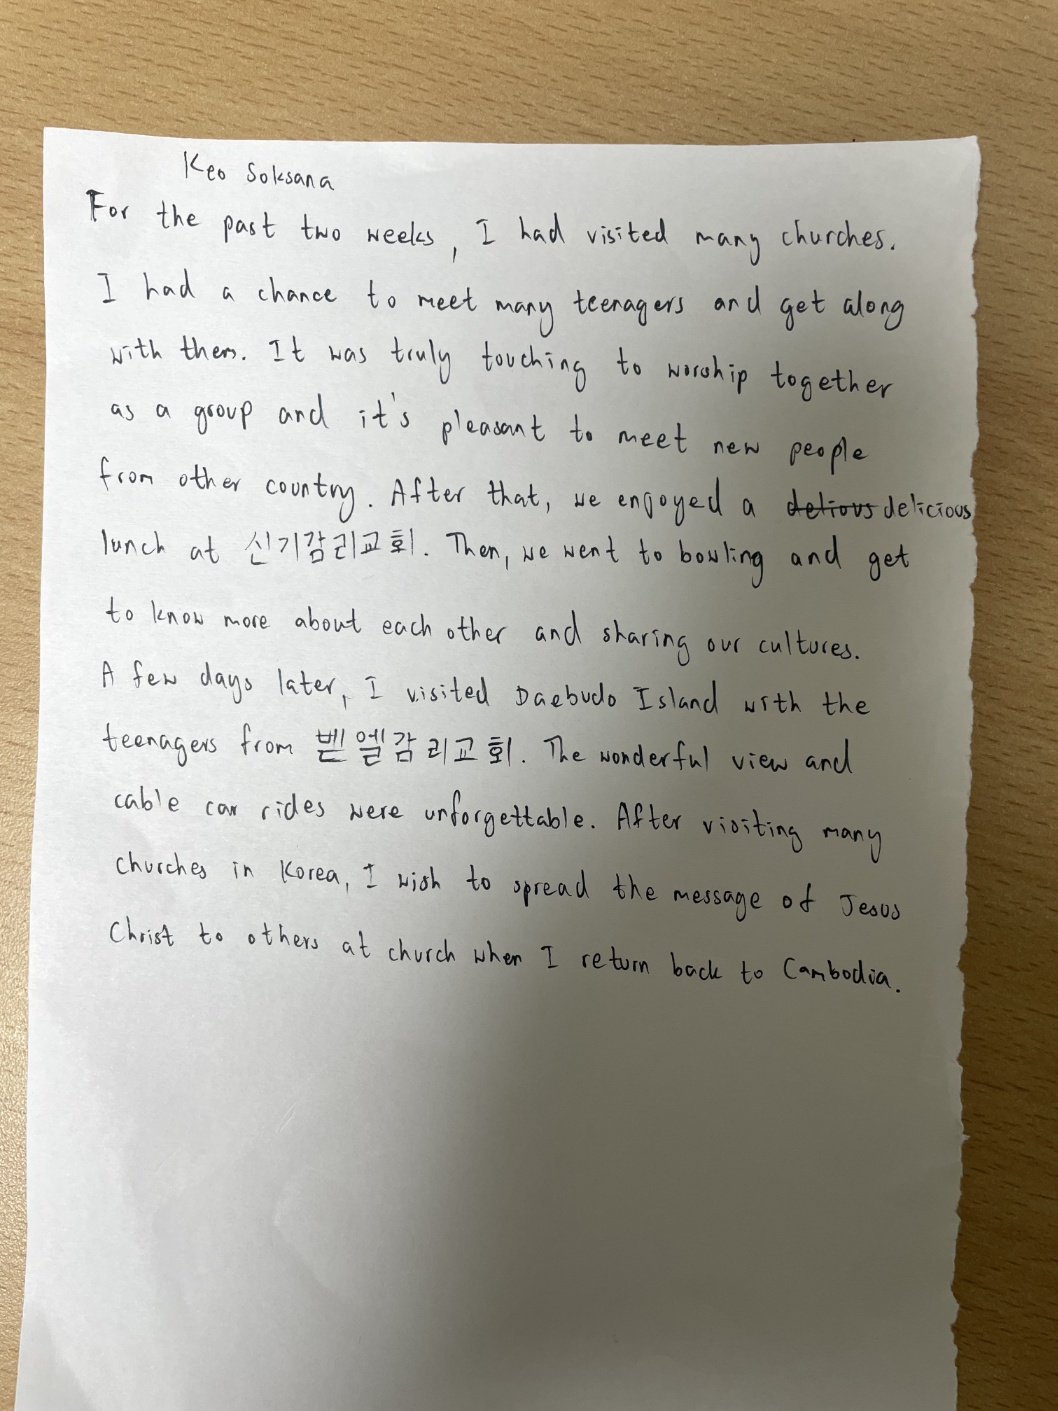 Keo Soksana
For the past two weeks, I had visited many churches.
I had a chance to meet many teenagers and get along
with them. It was truly touching to worship together
as a group and it's pleasant to meet new people
from other country. After that, we enjoyed a delious delicious
lunch at 신기감리교회. Then, we went to bowling and get
to know more about each other and sharing our cultures.
A few days later, I visited Daebudo Island with the
teenagers from 벧엘감리교회. The wonderful view and
cable car rides were unforgettable. After visiting many
churches in Korea, I wish to spread the message of Jesus
Christ to others at church when I return back to Cambodia.